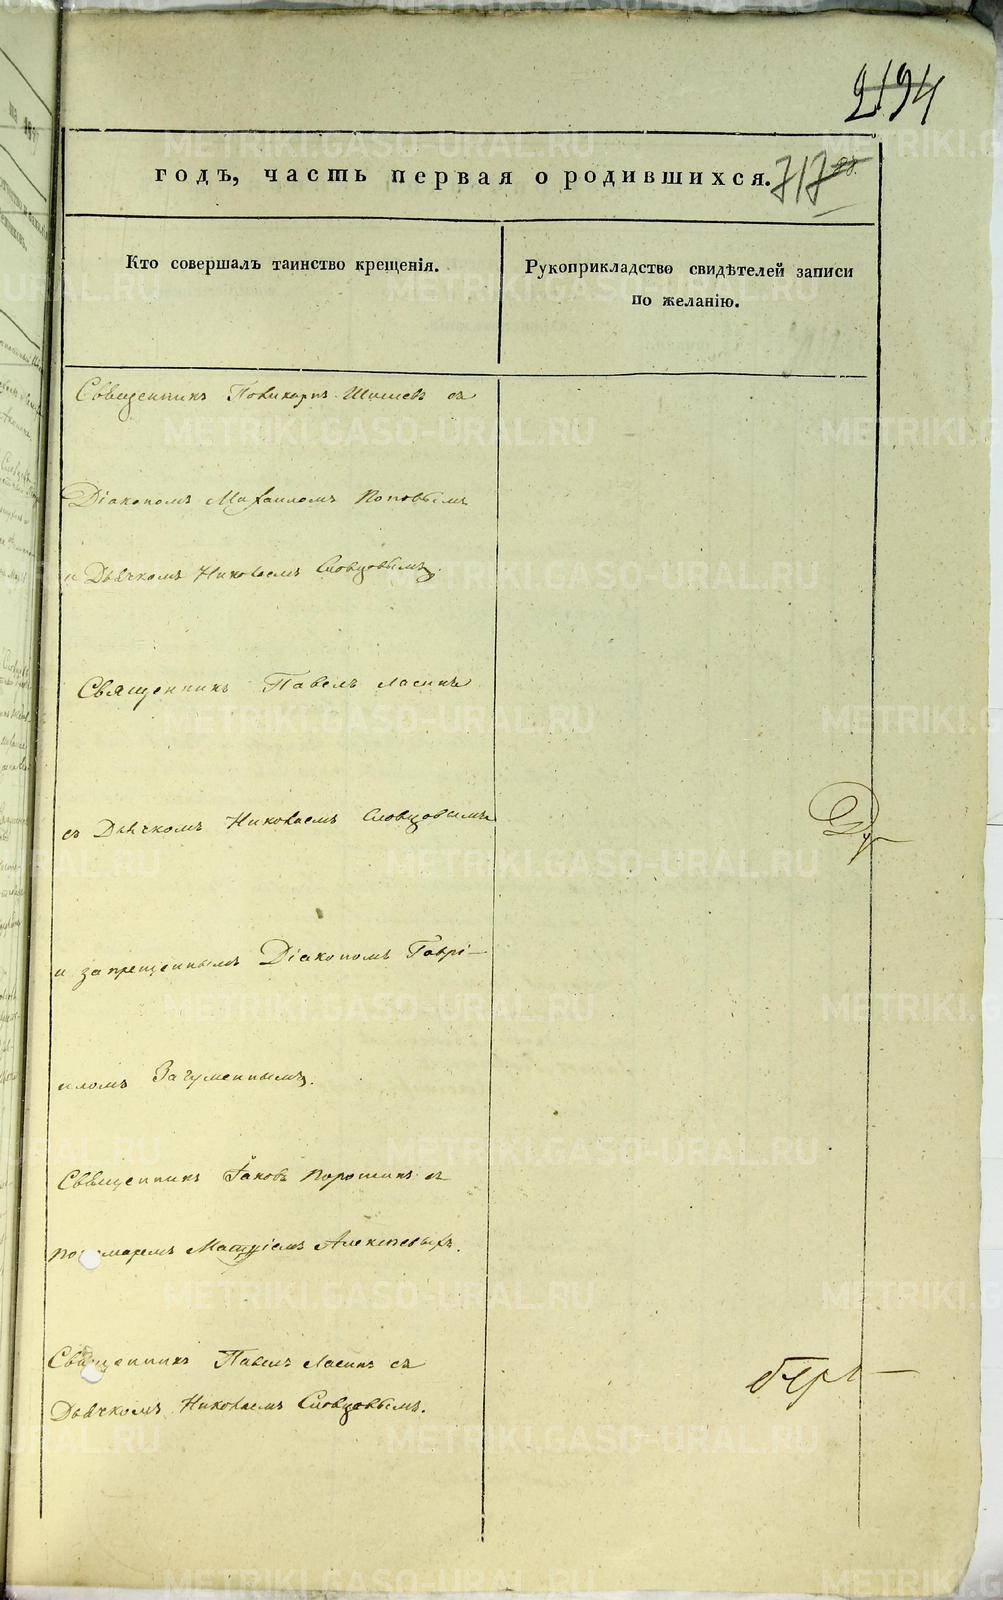 2194
годъ, часть первая о родившихся. 717
Кто совершалъ таинство крещенія.
Рукоприкладство свидѣтелей записи
по желанію.
Священникъ Поликарпъ Шишевъ съ
Діакономъ Михаиломъ Поповымъ
и Дьячкомъ Николаемъ Словцовымъ.
Священникъ Павелъ Ласинъ
съ Дьячкомъ Николаемъ Словцовымъ
и запрещеннымъ Діакономъ Гаврі-
иломъ Загуменнымъ.
Священникъ Іаковъ Порошинъ съ
пономаремъ Матѳіемъ Алексѣевымъ.
Священникъ Павелъ Ласинъ съ
Дьячкомъ Николаемъ Словцовымъ.
METRIKI.GASO-URAL.RU